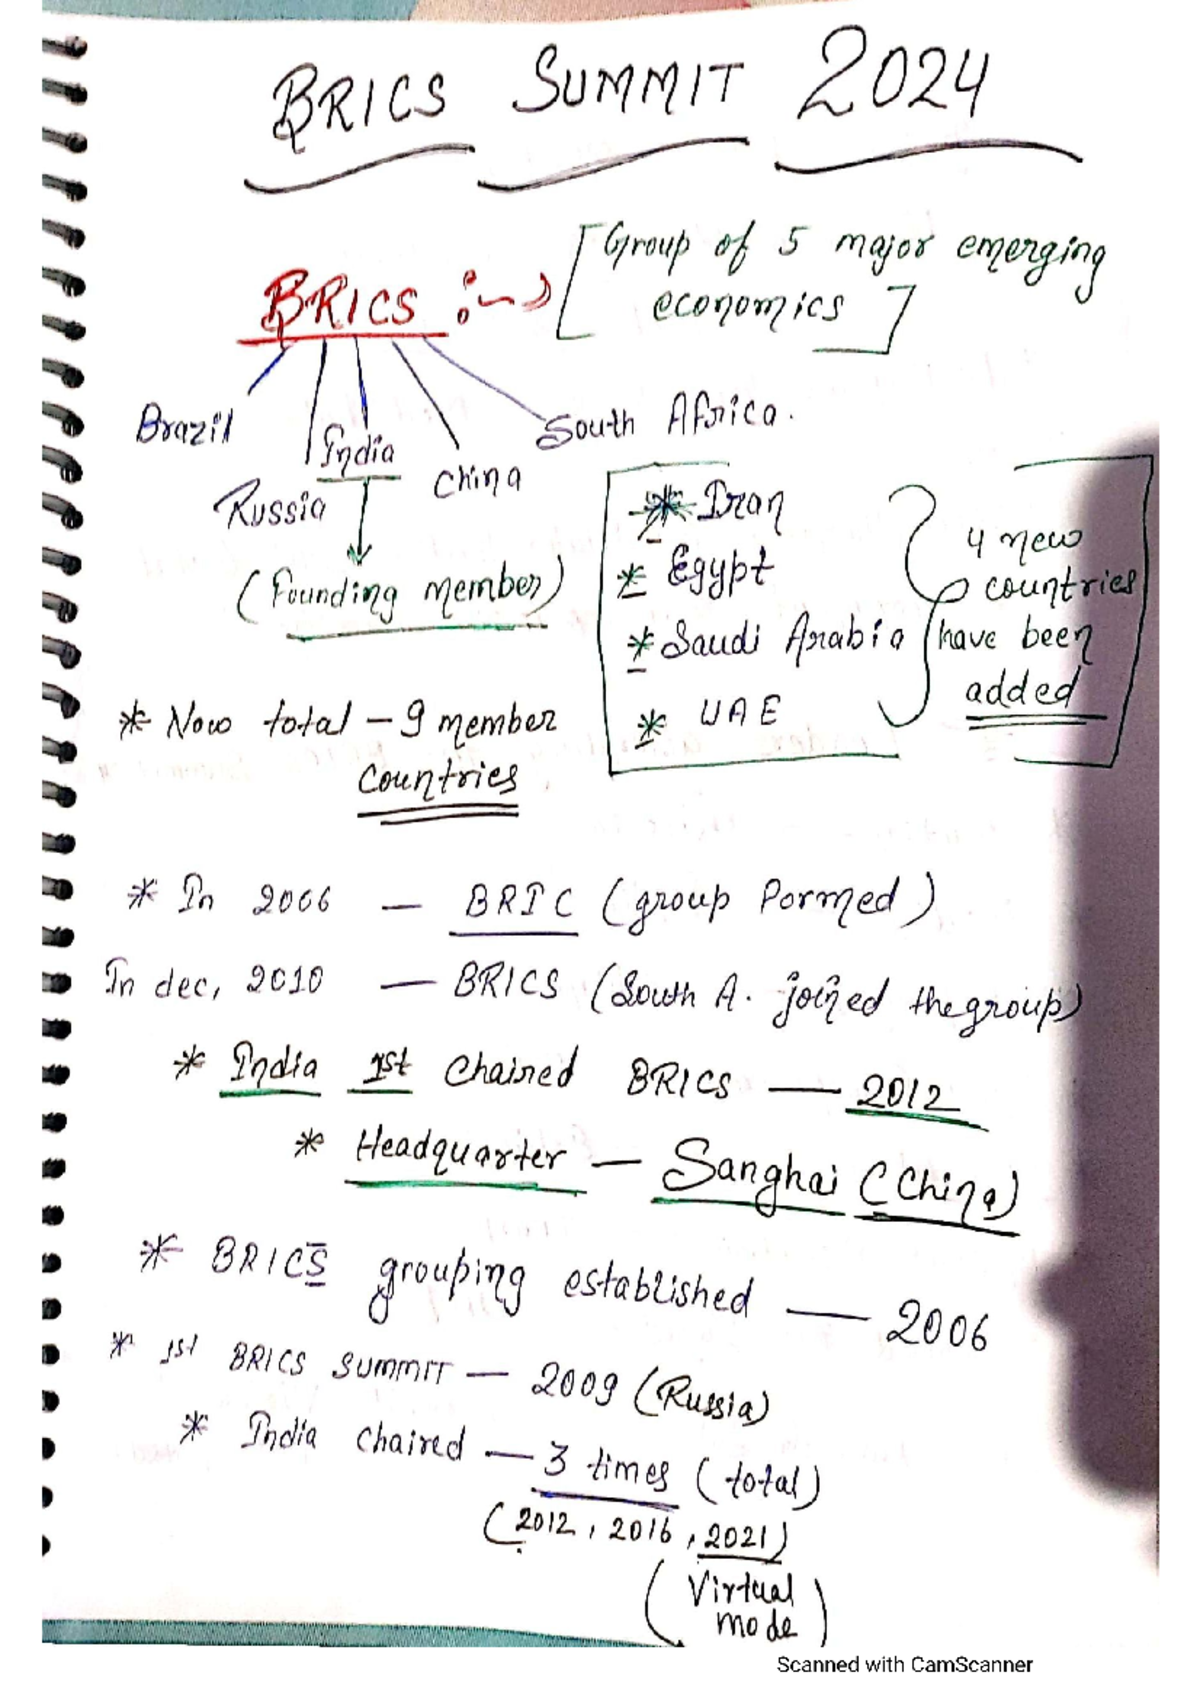 BRICS SUMMIT 2024
BRICS :→ [Group of 5 major emerging
economics]
Brazil
Russia
India
China
South Africa.
(Founding member)
* Iran
* Egypt
* Saudi Arabia
* UAE
4 new
countries
have been
added
* Now total - 9 member
countries
* In 2006 — BRIC (group formed)
In dec, 2010 — BRICS (South A. joined the group)
* India 1st chaired BRICS — 2012
* Headquarter — Sanghai (China)
* BRICS grouping established — 2006
* 1st BRICS SUMMIT — 2009 (Russia)
* India chaired — 3 times (total)
(2012, 2016, 2021)
(Virtual
mode)
Scanned with CamScanner